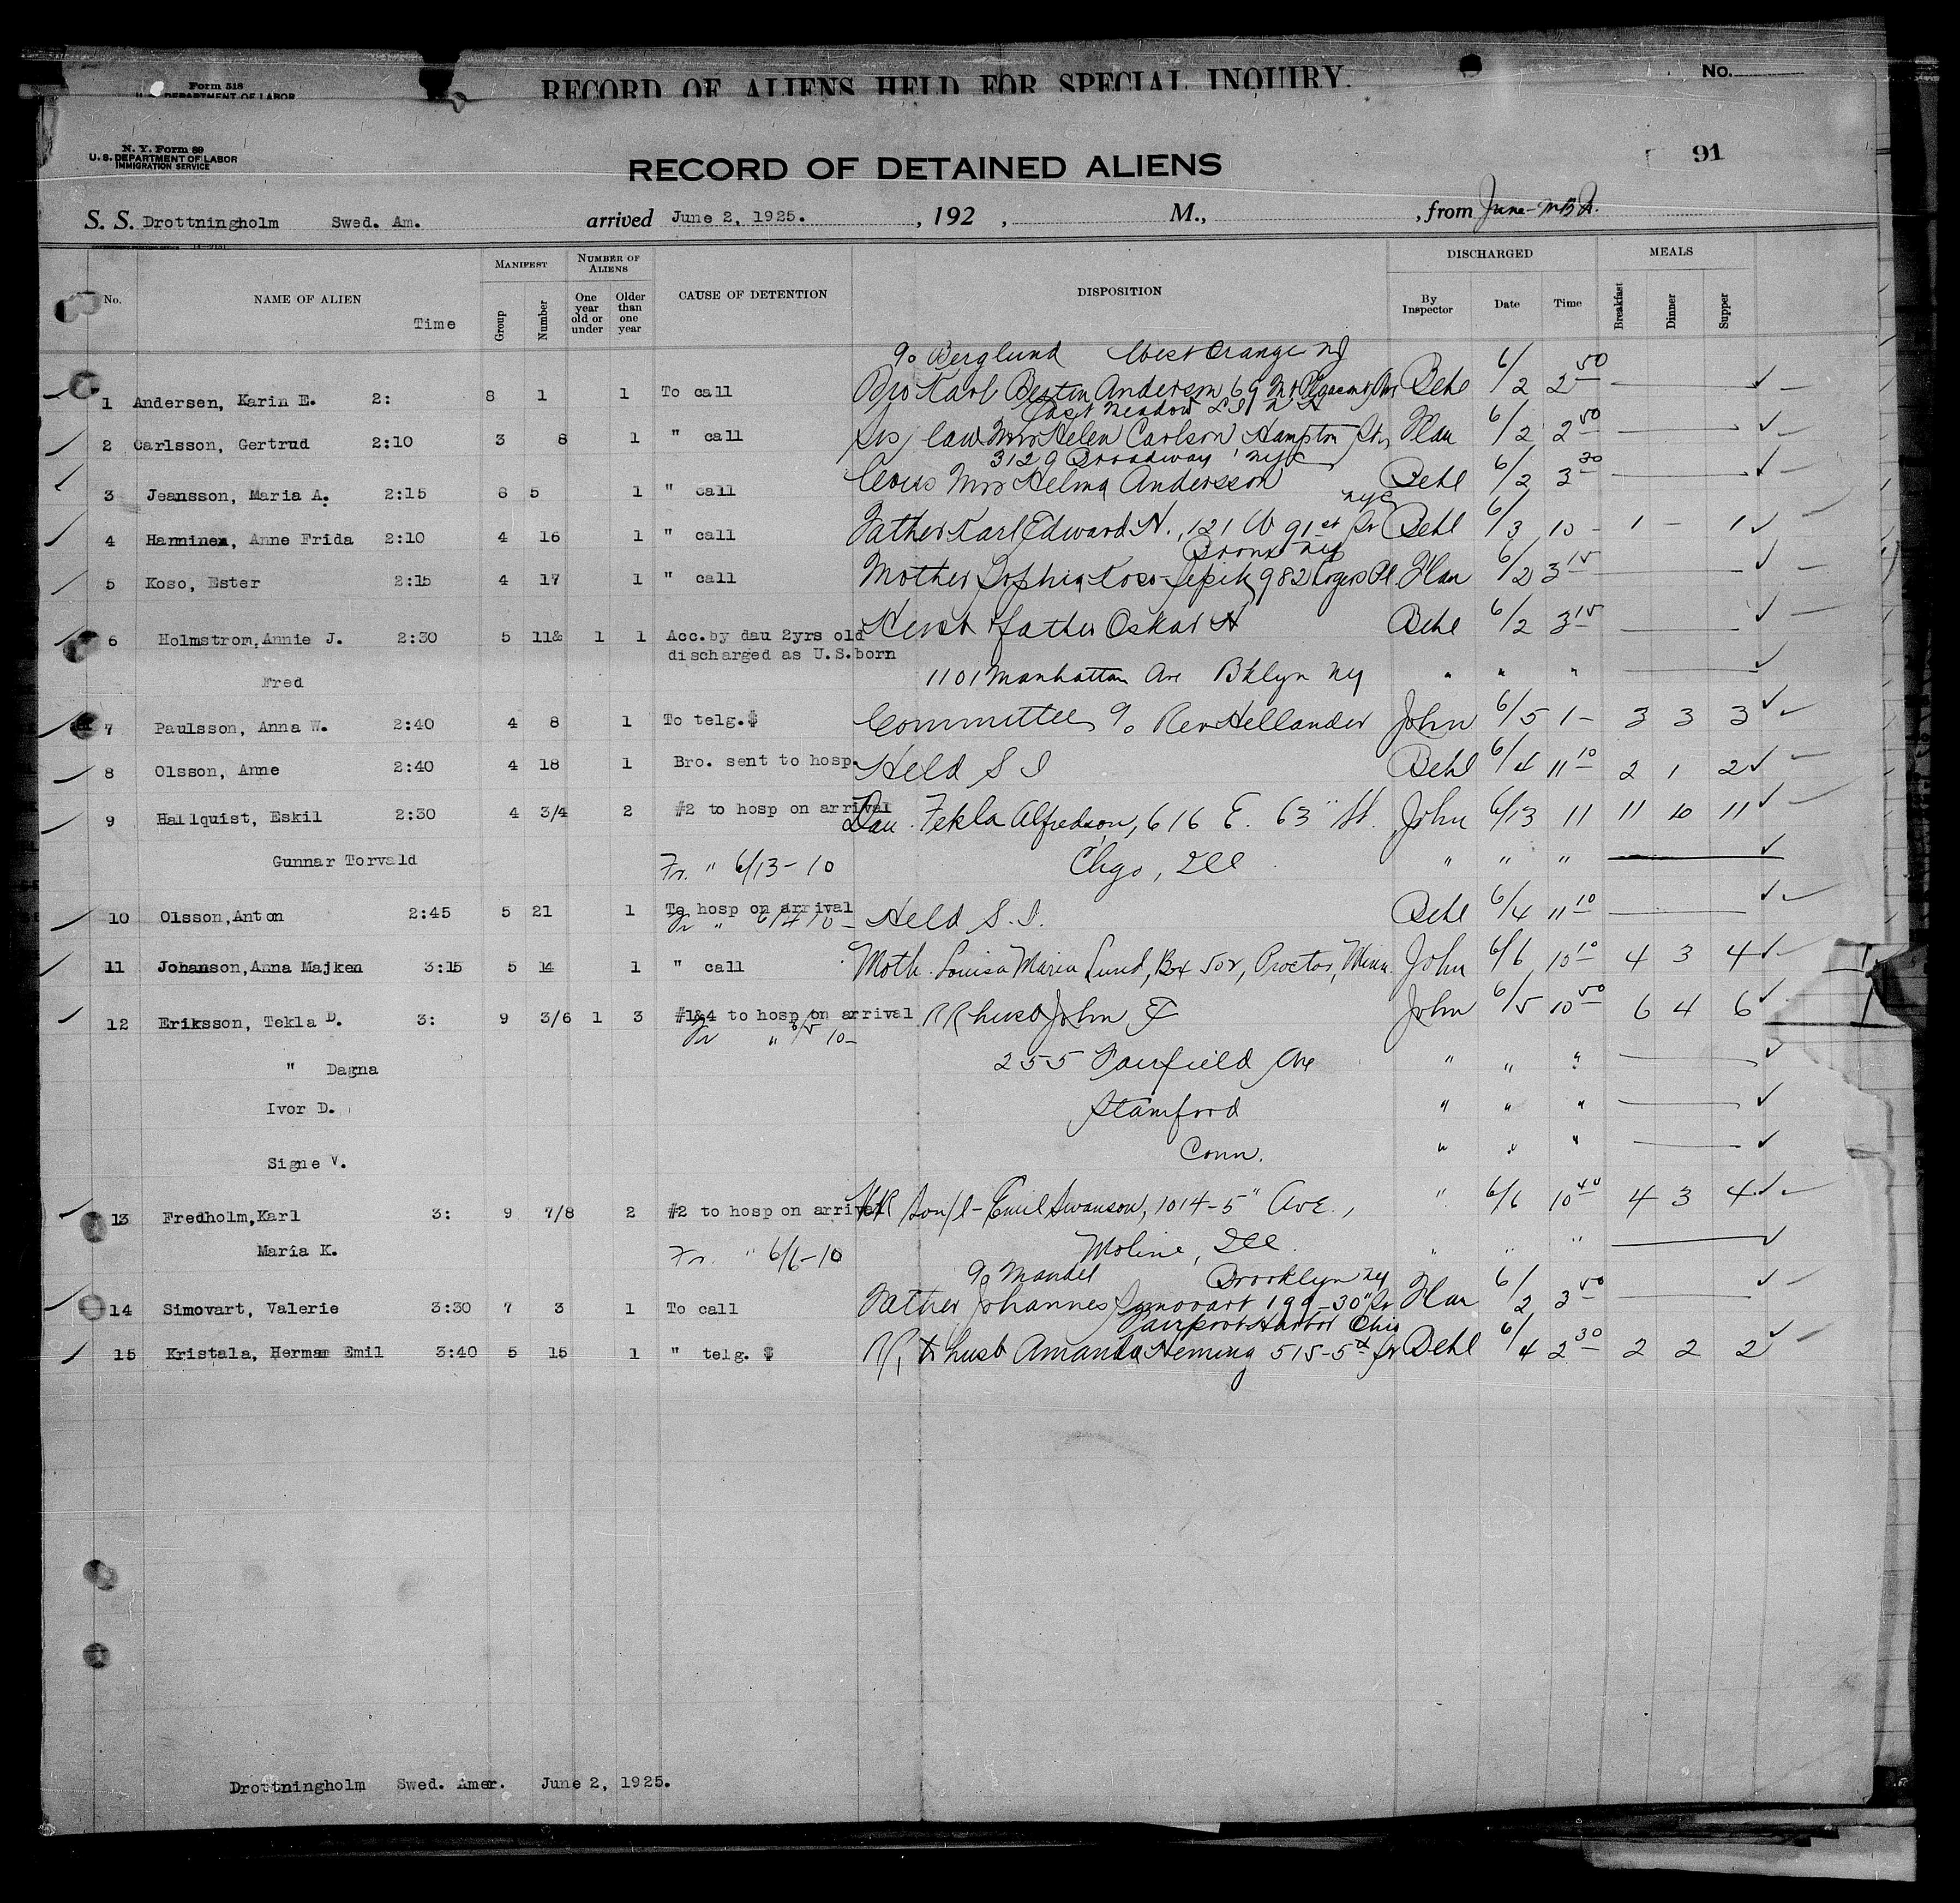 Form 518
U. S. DEPARTMENT OF LABOR
RECORD OF ALIENS HELD FOR SPECIAL INQUIRY.
No.
N. Y. Form 89
U. S. DEPARTMENT OF LABOR
IMMIGRATION SERVICE
RECORD OF DETAINED ALIENS
91
S. S. Drottningholm Swed. Am. arrived June 2, 1925. , 192 , M., , from June
No. NAME OF ALIEN Time MANIFEST Group Number NUMBER OF ALIENS One year old or under Older than one year CAUSE OF DETENTION DISPOSITION DISCHARGED By Inspector Date Time MEALS Breakfast Dinner Supper
% Berglund West Orange NJ
1 Andersen, Karin E. 2: 8 1 1 To call Bro Karl Anderson 69 Mt Pleasant Ave Behl 6/2 2 50
East Meadow L I N Y
2 Carlsson, Gertrud 2:10 3 8 1 " call Sis / law Mrs Helen Carlson Hampton 6/2 2 50
3129 Broadway NYC
3 Jeansson, Maria A. 2:15 8 5 1 " call Mrs Helma Andersson Behl 6/2 3 30
NYC
4 Harminen, Anne Frida 2:10 4 16 1 " call Father Karl Edward H., 121 W 91st St Behl 6/3 10 - 1 - 1
Bronx NY
5 Koso, Ester 2:15 4 17 1 " call Mother Sophia Koso 982 Rogers Pl. 6/2 3 15
6 Holmstrom, Annie J. 2:30 5 11& 1 1 Acc. by dau 2yrs old Husb & father Oskar H Behl 6/2 3 15
discharged as U.S. born
Fred 1101 Manhattan Ave Bklyn NY " " "
7 Paulsson, Anna W. 2:40 4 8 1 To telg. $ Committee % Rev Hellander John 6/5 1 - 3 3 3
8 Olsson, Anne 2:40 4 18 1 Bro. sent to hosp. Held S I Behl 6/4 11 10 2 1 2
9 Hallquist, Eskil 2:30 4 3/4 2 #2 to hosp on arrival Dau. Tekla Alfredson, 616 E. 63" St. John 6/13 11 11 10 11
Gunnar Torvald Fr. " 6/13 - 10 Chgo, Ill " " "
10 Olsson, Anton 2:45 5 21 1 To hosp on arrival Held S. I. Behl 6/4 11 10
Fr " 6/4 10 -
11 Johanson, Anna Majken 3:15 5 14 1 " call Moth. Louisa Maria Lund, Box 502, Proctor, Minn. John 6/6 10 10 4 3 4
12 Eriksson, Tekla D. 3: 9 3/6 1 3 #1&4 to hosp on arrival RR husb John E John 6/5 10 50 6 4 6
Fr " 6/5 10 -
" Dagna 255 Fairfield Ave " " "
Ivor D. Stamford " " "
Signe V. Conn. " " "
13 Fredholm, Karl 3: 9 7/8 2 #2 to hosp on arrival RR Son/l - Emil Swanson, 1014 - 5" Ave., " 6/6 10 40 4 3 4
Maria K. Fr. " 6/6 - 10 Moline, Ill. " " "
% Mandel Brooklyn NY
14 Simovart, Valerie 3:30 7 3 1 To call Father Johannes Simovart 199 - 30" St 6/2 3 50
Fairport Harbor Ohio
15 Kristala, Herman Emil 3:40 5 15 1 " telg. $ RR, to husb Amanda Heming 515 - 5th St Behl 6/4 2 30 2 2 2
Drottningholm Swed. Amer. June 2, 1925.